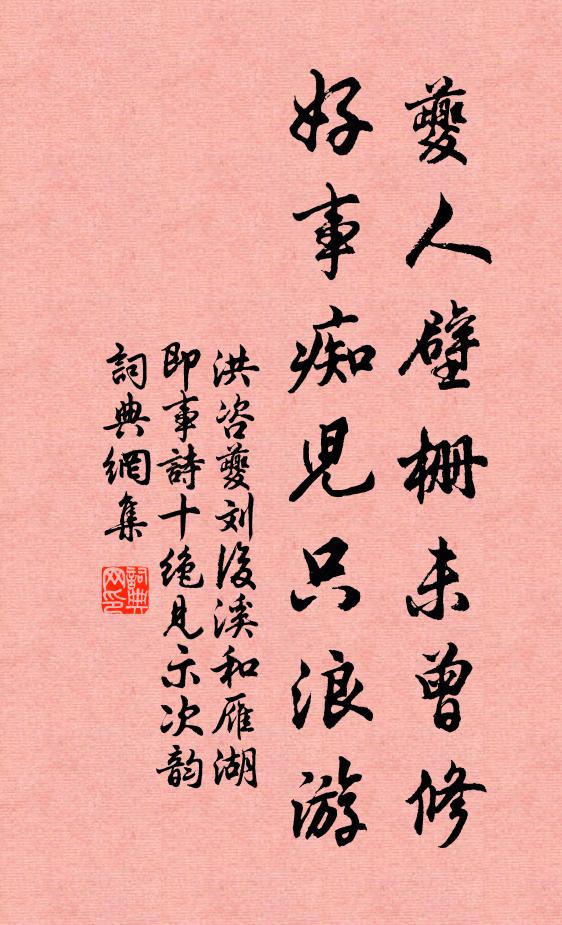 夔人壁栅未曾修
好事痴児只浪游
洪咨夔刘後溪和雁湖
即事詩十绝見示次韵
詞典網集
詞典网印